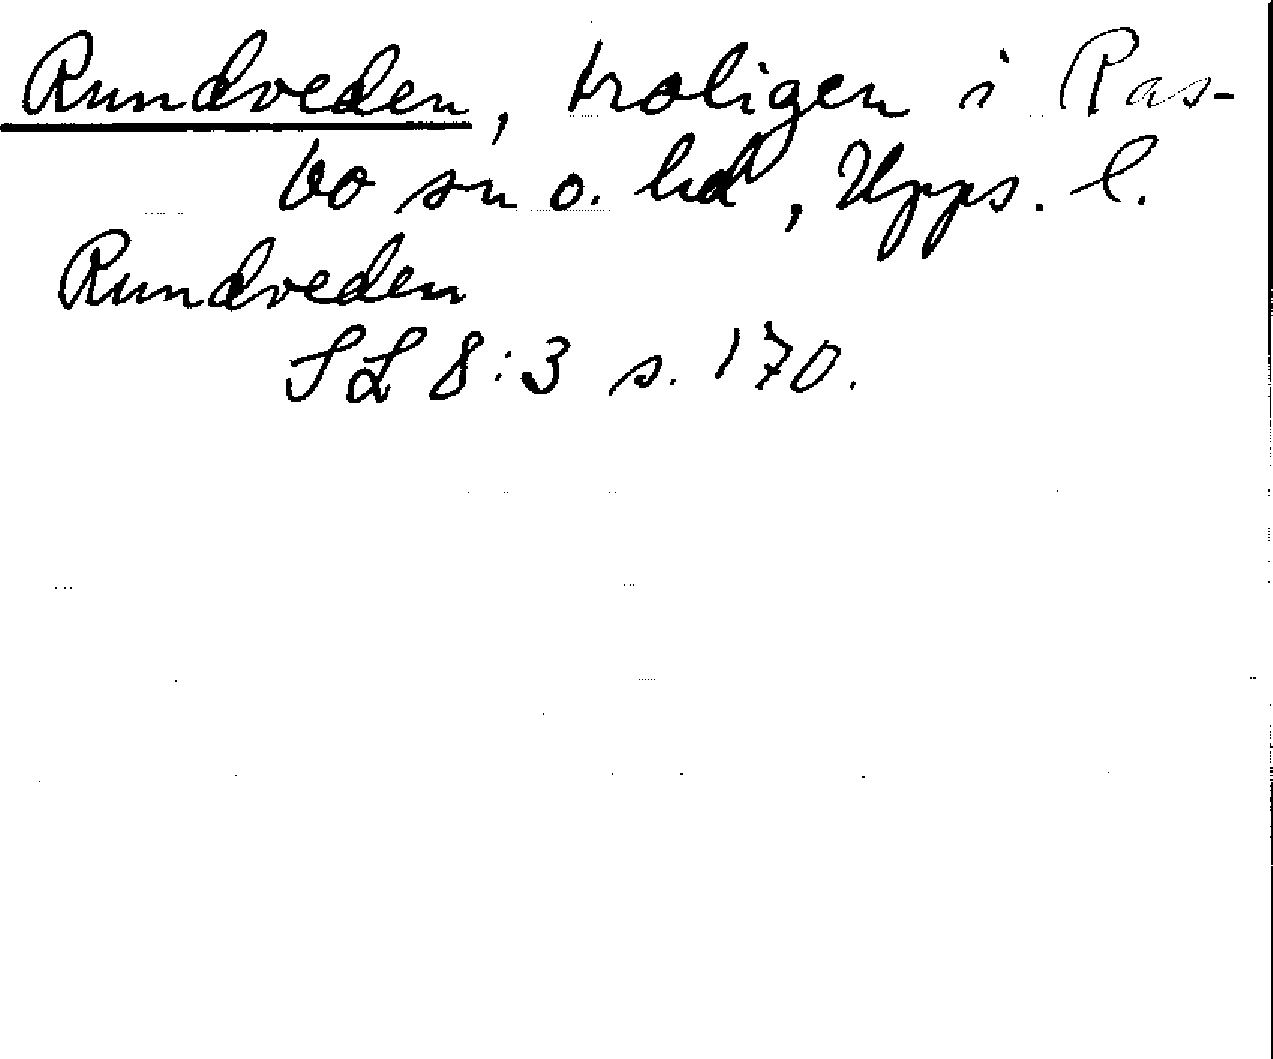 Rundveden, troligen i Ras-
bo sn o. hd, Upps. l.
Rundveden
SL 8:3 s. 170.